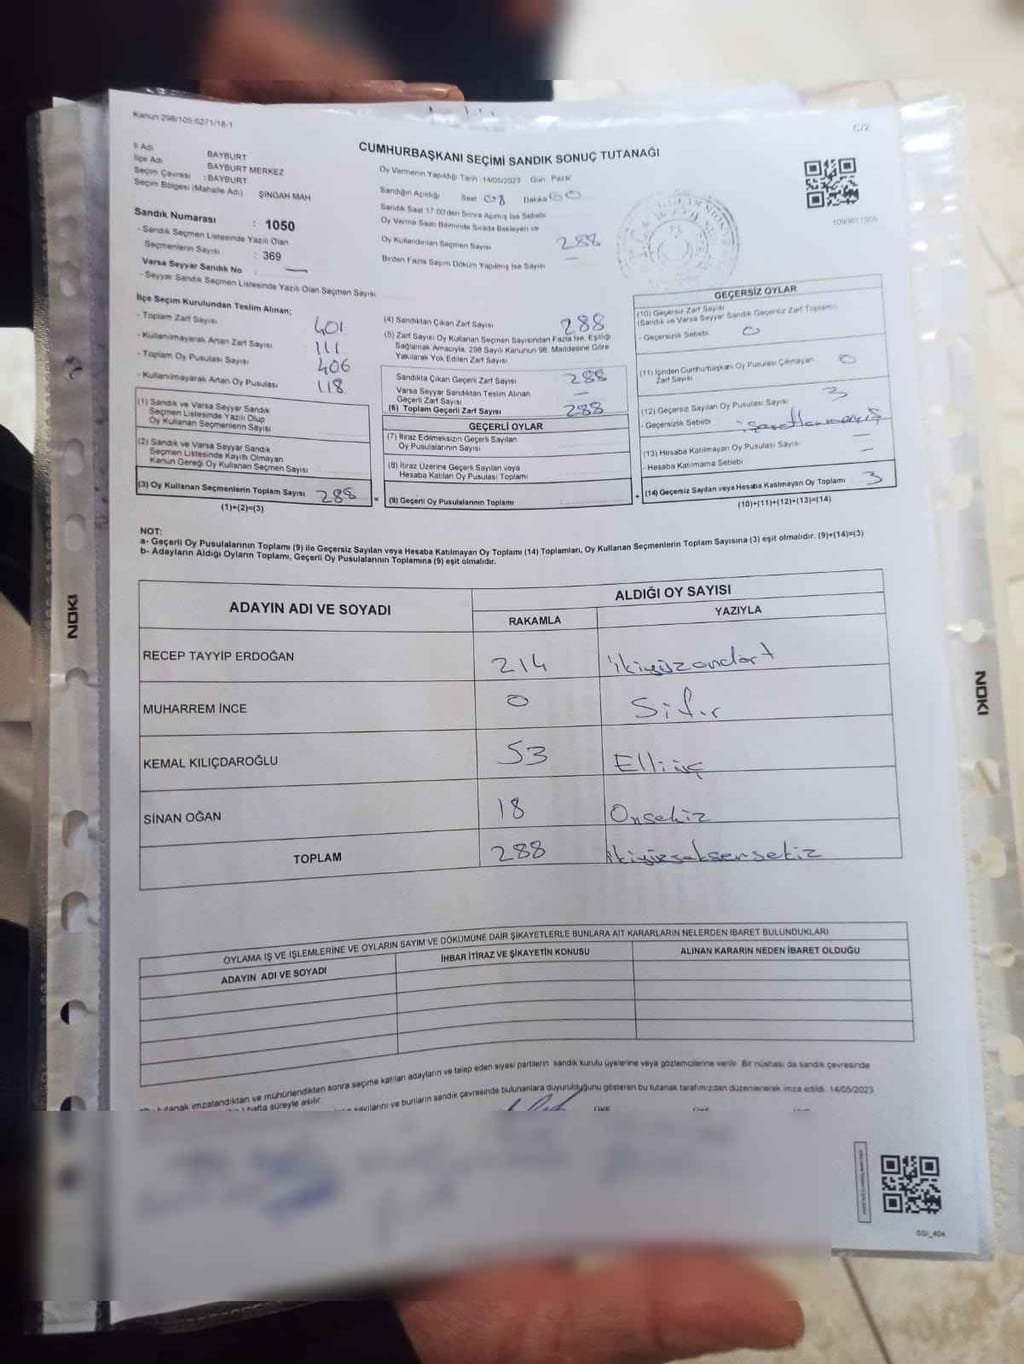 Kanun 298/105,6271/18-1
CUMHURBAŞKANI SEÇİMİ SANDIK SONUÇ TUTANAĞI
İl Adı BAYBURT
İlçe Adı BAYBURT MERKEZ
Seçim Çevresi : BAYBURT
Seçim Bölgesi (Mahalle Adı) ŞINGAH MAH
Sandık Numarası : 1050
- Sandık Seçmen Listesinde Yazılı Olan
Seçmenlerin Sayısı : 369
Varsa Seyyar Sandık No —
- Seyyar Sandık Seçmen Listesinde Yazılı Olan Seçmen Sayısı
Oy Vermenin Yapıldığı Tarih : 14/05/2023 Gün : Pazar
Sandığın Açıldığı Saat 08 Dakika 00
Sandık Saat 17:00'den Sonra Açılmış İse Sebebi
Oy Verme Saati Bitiminde Sırada Bekleyen ve
Oy Kullandırılan Seçmen Sayısı 288
Birden Fazla Sayım Döküm Yapılmış İse Sayısı —
İlçe Seçim Kurulundan Teslim Alınan;
- Toplam Zarf Sayısı 401
- Kullanılmayarak Artan Zarf Sayısı 111
- Toplam Oy Pusulası Sayısı 406
- Kullanılmayarak Artan Oy Pusulası 118
(1) Sandık ve Varsa Seyyar Sandık
Seçmen Listesinde Yazılı Olup
Oy Kullanan Seçmenlerin Sayısı
(2) Sandık ve Varsa Seyyar Sandık
Seçmen Listesinde Kayıtlı Olmayan
Kanun Gereği Oy Kullanan Seçmen Sayısı
(3) Oy Kullanan Seçmenlerin Toplam Sayısı 288
(1)+(2)=(3)
(4) Sandıktan Çıkan Zarf Sayısı 288
(5) Zarf Sayısı Oy Kullanan Seçmen Sayısından Fazla İse, Eşitliği
Sağlamak Amacıyla, 298 Sayılı Kanunun 98. Maddesine Göre
Yakılarak Yok Edilen Zarf Sayısı
Sandıkta Çıkan Geçerli Zarf Sayısı 288
Varsa Seyyar Sandıktan Teslim Alınan
Geçerli Zarf Sayısı —
(6) Toplam Geçerli Zarf Sayısı 288
GEÇERLİ OYLAR
(7) İtiraz Edilmeksizin Geçerli Sayılan
Oy Pusulalarının Sayısı
(8) İtiraz Üzerine Geçerli Sayılan veya
Hesaba Katılan Oy Pusulası Toplamı
= (9) Geçerli Oy Pusulalarının Toplamı
GEÇERSİZ OYLAR
(10) Geçersiz Zarf Sayısı
(Sandık ve Varsa Seyyar Sandık Geçersiz Zarf Toplamı)
- Geçersizlik Sebebi 0
(11) İçinden Cumhurbaşkanı Oy Pusulası Çıkmayan
Zarf Sayısı 0
(12) Geçersiz Sayılan Oy Pusulası Sayısı 3
- Geçersizlik Sebebi işaretlenmemiş
(13) Hesaba Katılmayan Oy Pusulası Sayısı —
- Hesaba Katılmama Sebebi —
+ (14) Geçersiz Sayılan veya Hesaba Katılmayan Oy Toplamı 3
(10)+(11)+(12)+(13)=(14)
NOT:
a- Geçerli Oy Pusulalarının Toplamı (9) ile Geçersiz Sayılan veya Hesaba Katılmayan Oy Toplamı (14) Toplamları, Oy Kullanan Seçmenlerin Toplam Sayısına (3) eşit olmalıdır. (9)+(14)=(3)
b- Adayların Aldığı Oyların Toplamı, Geçerli Oy Pusulalarının Toplamına (9) eşit olmalıdır.
ADAYIN ADI VE SOYADI ALDIĞI OY SAYISI
RAKAMLA YAZIYLA
RECEP TAYYİP ERDOĞAN 214 ikiyüzondört
MUHARREM İNCE 0 Sıfır
KEMAL KILIÇDAROĞLU 53 Elliüç
SİNAN OĞAN 18 Onsekiz
TOPLAM 288 ikiyüzseksensekiz
OYLAMA İŞ VE İŞLEMLERİNE VE OYLARIN SAYIM VE DÖKÜMÜNE DAİR ŞİKAYETLERLE BUNLARA AİT KARARLARIN NELERDEN İBARET BULUNDUKLARI
ADAYIN ADI VE SOYADI İHBAR İTİRAZ VE ŞİKAYETİN KONUSU ALINAN KARARIN NEDEN İBARET OLDUĞU
tutanak imzalandıktan ve mühürlendikten sonra seçime katılan adayların ve talep eden siyasi partilerin sandık kurulu üyelerine veya gözlemcilerine verilir. Bir nüshası da sandık çevresinde
hafta süreyle asılır.
sayılarını ve bunların sandık çevresinde bulunanlara duyurulduğunu gösteren bu tutanak tarafımızdan düzenlenerek imza edildi. 14/05/2023
NOKI
NOKI